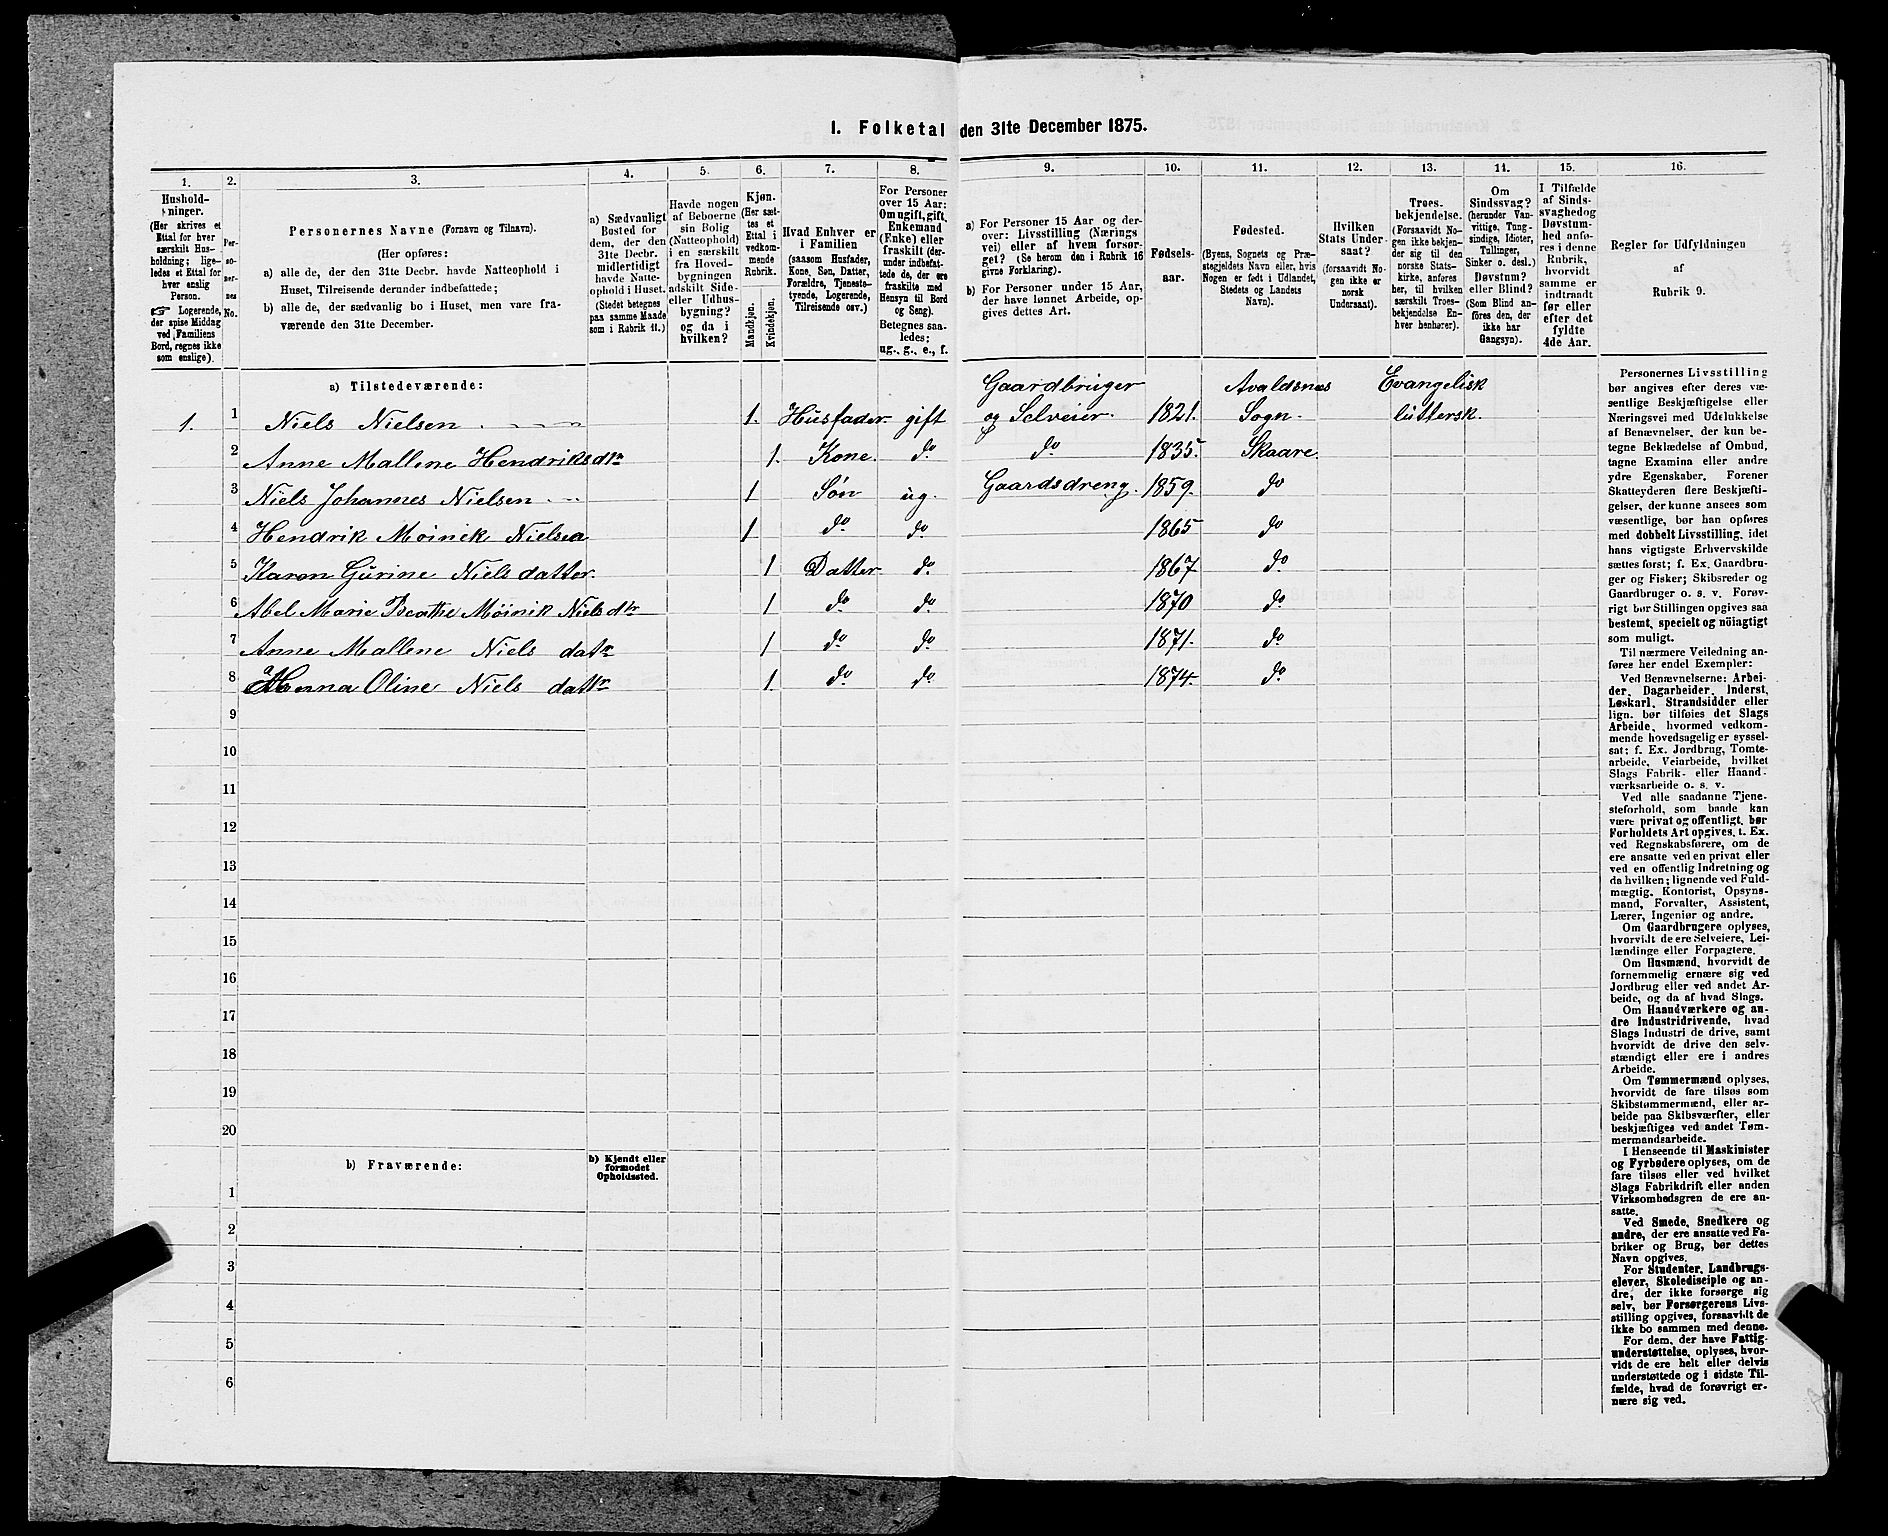 1. Folketal den 31te December 1875.
1. 2. 3. 4. 5. 6. 7. 8. 9. 10. 11. 12. 13. 14. 15. 16.
Hushold-
ninger.
(Her skrives et
Ettal for hver
særskilt Hus-
holdning; lige-
ledes et Ettal for
hver enslig
Person.
☞ Logerende,
der spise Middag
ved Familiens
Bord, regnes ikke
som enslige).
Per-
so-
ner-
nes
No.
Personernes Navne (Fornavn og Tilnavn).
(Her opføres:
a) alle de, der den 31te Decbr. havde Natteophold i
Huset, Tilreisende derunder indbefattede;
b) alle de, der sædvanlig bo i Huset, men vare fra-
værende den 31te December.
a) Sædvanligt
Bosted for
dem, der den
31te Decbr.
midlertidigt
havde Natte-
ophold i Huset.
(Stedet betegnes
paa samme Maade
som i Rubrik 11.)
Havde nogen
af Beboerne
sin Bolig
(Natteophold)
i en særskilt
fra Hoved-
bygningen
adskilt Side-
eller Udhus-
bygning?
og da i
hvilken?
Kjøn.
(Her sæt-
tes et
Ettal i
vedkom-
mende
Rubrik.
Mandkjøn.
Kvindekjøn.
Hvad Enhver er
i Familien
(saasom Husfader,
Kone, Søn, Datter,
Forældre, Tjeneste-
tyende, Logerende,
Tilreisende osv.)
For Personer
over 15 Aar:
Om ugift, gift,
Enkemand
(Enke) eller
fraskilt (der-
under indbefat-
tede de, der ere
fraskilte med
Hensyn til Bord
og Seng).
Betegnes saa-
ledes:
ug., g., e., f.
a) For Personer 15 Aar og der-
over: Livsstilling (Nærings
vei) eller af hvem forsør-
get? (Se herom den i Rubrik 16
givne Forklaring).
b) For Personer under 15 Aar,
der have lønnet Arbeide, op-
gives dettes Art.
Fødsels-
aar.
Fødested.
(Byens, Sognets og Præ-
stegjeldets Navn eller, hvis
Nogen er født i Udlandet,
Stedets og Landets
Navn).
Hvilken
Stats Under-
saat?
(forsaavidt No-
gen ikke er
norsk
Undersaat).
Troes-
bekjendelse.
(Forsaavidt No-
gen ikke bekjen-
der sig til den
norske Stats-
kirke, anføres
her, til hvilken
særskilt Troes-
bekjendelse En-
hver henhører).
Om
Sindssvag?
(herunder Van-
vittige, Tung-
sindige, Idioter,
Tullinger,
Sinker o. desl.)
Døvstum?
eller Blind?
(Som Blind an-
føres den, der
ikke har
Gangsyn).
I Tilfælde
af Sinds-
svaghed og
Døvstum-
hed anfø-
res i denne
Rubrik,
hvorvidt
samme er
indtraadt
før eller
efter det
fyldte
4de Aar.
Regler for Udfyldningen
af
Rubrik 9.
a) Tilstedeværende:
Gaardbruger Avaldsnes Evangelisk
1. 1 Niels Nielsen 1. Husfader gift og Selveier 1821. Sogn luttersk.
2 Anne Mallene Hendriksdtr 1. Kone. do do 1835. Skaare.
3 Niels Johannes Nielsen 1 Søn ug. Gaardsdreng. 1859. do
4 Hendrik Møinik Nielsen 1 do do 1865 do
5 Karen Gurine Nielsdatter. 1 Datter do 1867 do
6 Abel Marie Beathe Møinik Nielsdtr 1 do do 1870 do
7 Anne Mallene Niels datr 1 do do 1871. do
8 Henna Oline Niels dattr 1. do do 1874. do
9
10
11
12
13
14
15
16
17
18
19
20
b) Fraværende:
b) Kjendt eller
formodet
Opholdssted.
1
2
3
4
5
6
Personernes Livsstilling
bør angives efter deres væ-
sentlige Beskjæftigelse eller
Næringsvei med Udelukkelse
af Benævnelser, der kun be-
tegne Beklædelse af Ombud,
tagne Examina eller andre
ydre Egenskaber. Forener
Skatteyderen flere Beskjæfti-
gelser, der kunne ansees som
væsentlige, bør han opføres
med dobbelt Livsstilling, idet
hans vigtigste Erhvervskilde
sættes først; f. Ex. Gaardbru-
ger og Fisker; Skibsreder og
Gaardbruger o. s. v. Forøv-
rigt bør Stillingen opgives saa
bestemt, specielt og nöiagtigt
som muligt.
Til nærmere Veiledning an-
føres her endel Exempler:
Ved Benævnelserne: Arbei-
der, Dagarbeider, Inderst,
Løskarl, Strandsidder eller
lign. bør tilføies det Slags
Arbeide, hvormed vedkom-
mende hovedsagelig er syssel-
sat; f. Ex. Jordbrug, Tomte-
arbeide, Veiarbeide, hvilket
Slags Fabrik- eller Haand-
værksarbeide o. s. v.
Ved alle saadanne Tjene-
steforhold, som baade kan
være privat og offentligt, bør
Forholdets Art opgives, t. Ex.
ved Regnskabsførere, om de
ere ansatte ved en privat eller
ved en offentlig Indretning og
da hvilken; lignende ved Fuld-
mægtig, Kontorist, Opsyns-
mand, Forvalter, Assistent,
Lærer, Ingeniør og andre.
Om Gaardbrugere oplyses,
hvorvidt de ere Selveiere, Lei-
lændinge eller Forpagtere.
Om Husmænd, hvorvidt de
fornemmelig ernære sig ved
Jordbrug eller ved andet Ar-
beide, og da af hvad Slags.
Om Haandværkere og an-
dre Industridrivende, hvad
Slags Industri de drive, samt
hvorvidt de drive den selv-
stændigt eller ere i andres
Arbeide.
Om Tømmermænd oplyses,
hvorvidt de fare tilsøs som
Skibstømmermænd, eller ar-
beide paa Skibsværfter, eller
beskjæftiges ved andet Tøm-
mermandsarbeide.
I Henseende til Maskinister
og Fyrbødere oplyses, om de
fare tilsøs eller ved hvilket
Slags Fabrikdrift eller anden
Virksomhedsgren de ere an-
satte.
Ved Smede, Snedkere og
andre, der ere ansatte ved Fa-
briker og Brug, bør dettes
Navn opgives.
For Studenter, Landbrugs-
elever, Skoledisciple og an-
dre, der ikke forsørge sig
selv, bør Forsørgerens Livs-
stilling opgives, forsaavidt de
ikke bo sammen med denne.
For dem, der have Fattig-
understøttelse, oplyses, hvor-
vidt de ere helt eller delvis
understøttede og i sidste Til-
fælde, hvad de forøvrigt er-
nære sig ved.